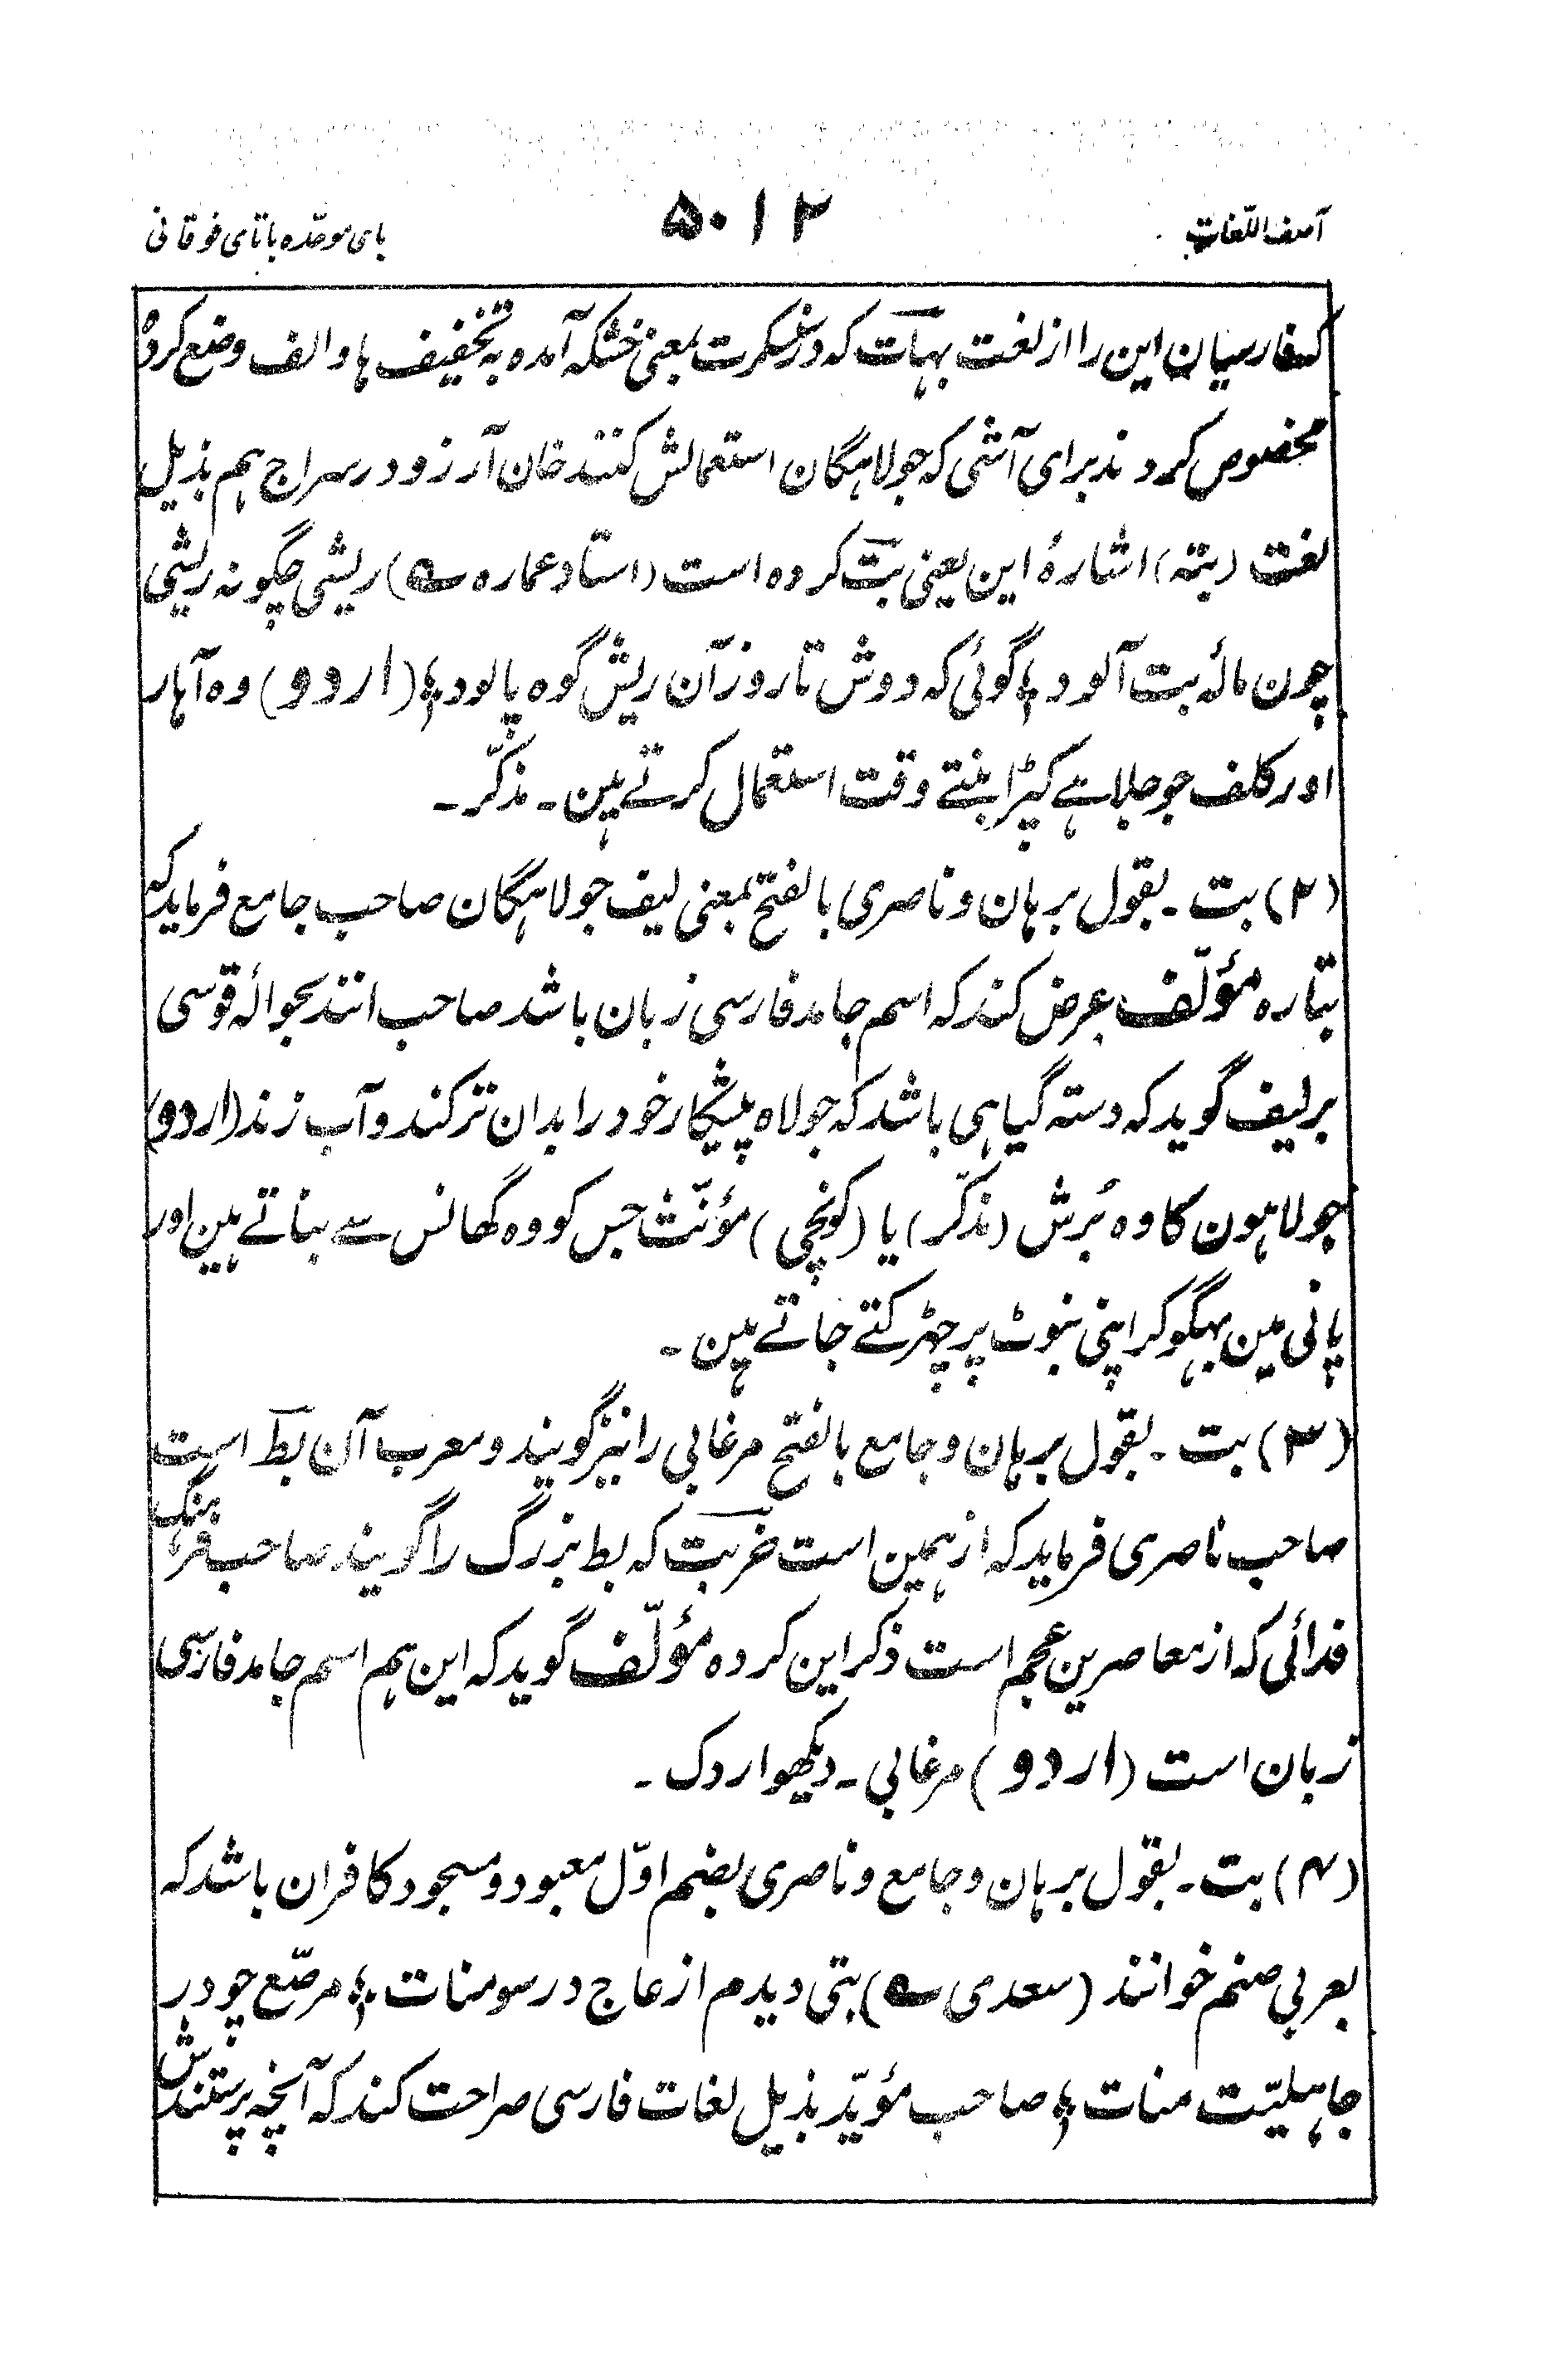 آصف اللّغات
۵۰۱۲
بای موحّدہ با تای فوقانی
کہ فارسیان این را از لغت بہات کہ در سنسکرت بمعنی خشکہ آمدہ بہ تخفیف ہا و الف وضع کردہ
مخصوص کردند برای آشی کہ جولاہگان استعمالش کنند خان آرزو در سراج ہم بذیل
لغت (بتہ) اشارۂ این یعنی بت کردہ است (استاد عمارہ ؎) ریشی چگونہ ریشی
چون مالۂ بت آلود ؛ گوئی کہ دوش تا روز آن ریش گوہ پالود ؛ (اردو) وہ آہار
اور کلف جو جلاہے کپڑا بنتے وقت استعمال کرتے ہین ۔ مذکّر ۔
(۲) بت ۔ بقول برہان و ناصری بالفتح بمعنی لیف جولاہگان صاحب جامع فرماید کہ
بتارہ مؤلّف عرض کند کہ اسم جامد فارسی زبان باشد صاحب انند بحوالۂ قوسی
بر لیف گوید کہ دستہ گیاہی باشد کہ جولاہ پیشکار خود را بدان تر کند و آب زند (اردو)
جولاہون کا وہ بُرش (مذکّر) یا (کونچی) مؤنّث جس کو وہ گھانس سے بناتے ہین اور
پانی مین بہگو کر اپنی بنوٹ پر چھڑکتے جاتے ہین ۔
(۳) بت ۔ بقول برہان و جامع بالفتح مرغابی را نیز گویند و معرب آن بط است
صاحب ناصری فرماید کہ از ہمین است خربت کہ بط بزرگ را گویند صاحب فرہنگ
فدائی کہ از معاصرین عجم است ذکر این کردہ مؤلّف گوید کہ این ہم اسم جامد فارسی
زبان است (اردو) مرغابی ۔ دیکھو اردک ۔
(۴) بت ۔ بقول برہان و جامع و ناصری بضم اوّل معبود و مسجود کافران باشد کہ
بعربی صنم خوانند (سعدی ؎) بتی دیدم از عاج در سومنات ؛ مرصّع چو در
جاہلیّت منات ؛ صاحب مؤیّد بذیل لغات فارسی صراحت کند کہ آنچہ پرستندش